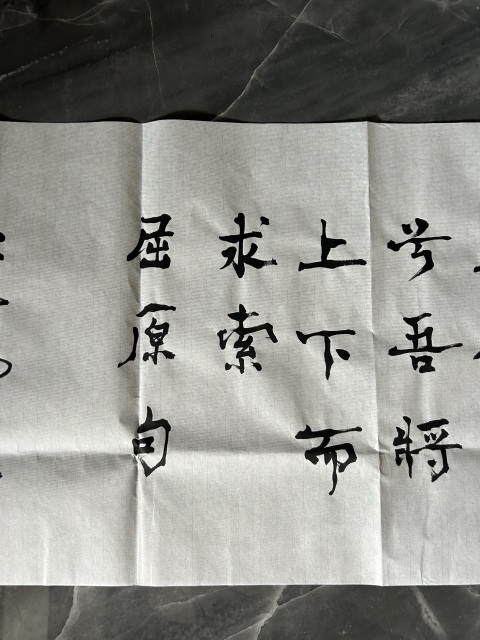 兮吾將
上下而
求索
屈原句